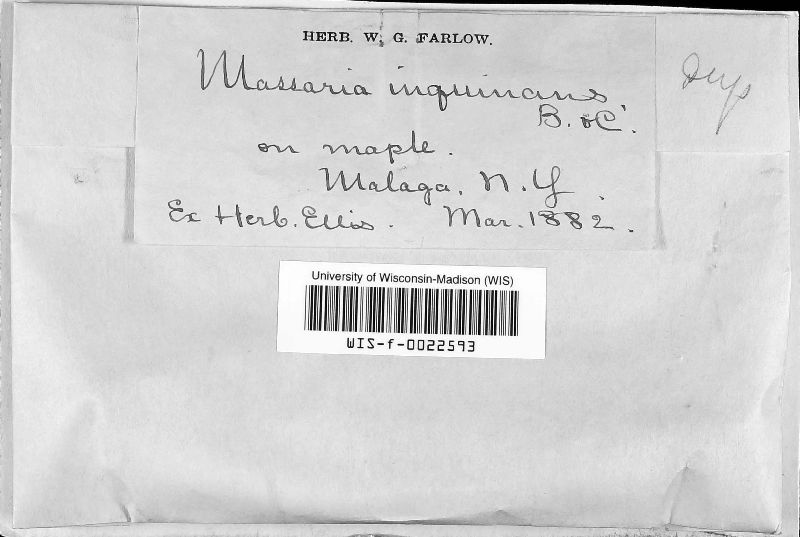 HERB. W. G. FARLOW.
Massaria inquinans
B. & C.
on maple.
Malaga, N.Y.
Ex Herb. Ellis. Mar. 1882.
University of Wisconsin-Madison (WIS)
WIS-f-0022593